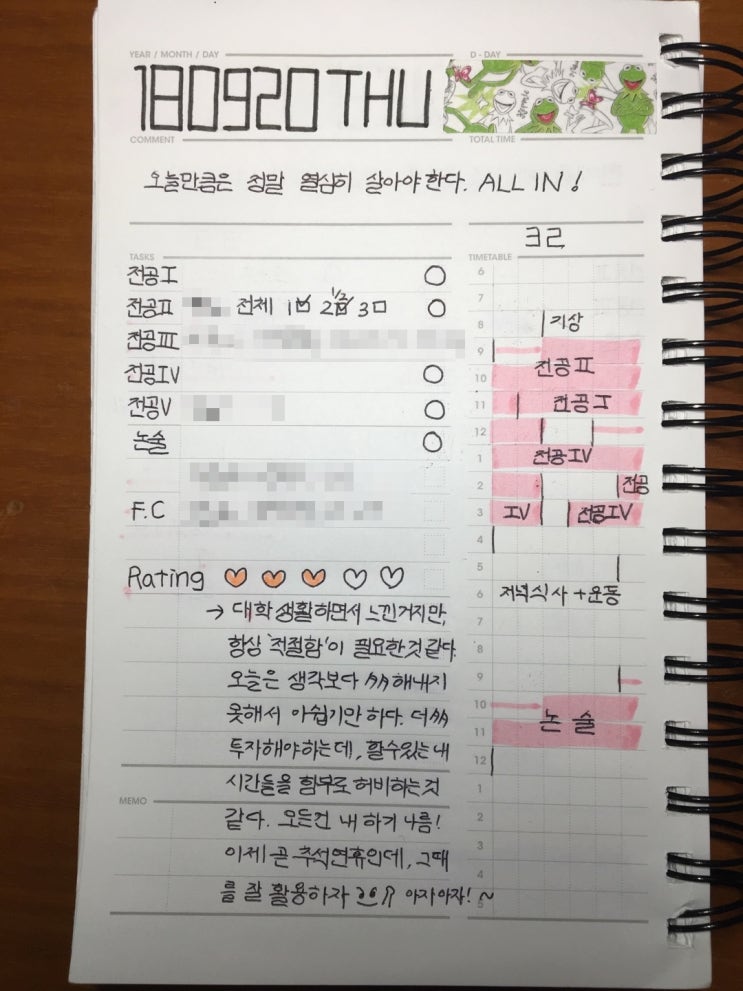 YEAR / MONTH / DAY
D - DAY
180920 THU
COMMENT
TOTAL TIME
오늘만큼은 정말 열심히 살아야 한다. ALL IN!
TASKS
TIMETABLE
전공 I
전공 II 전제 1 2 1/2 3
전공 III
전공 IV
전공 V
논술
F.C
Rating
→ 대학생활하면서 느낀거지만,
항상 '적절함'이 필요한것 같다.
오늘은 생각보다 解해내지
못해서 아쉽기만 하다. 더
투자해야하는데, 활수있는 내
시간들을 함부로 허비하는것
같다. 모든건 내 하기 나름!
MEMO
이제 곧 추석연휴인데, 그때
를 잘 활용하자 아자아자! ~
6
7
8 기상
9
전공 II
10
11 전공 I
12
1 전공 IV
2 전공
3 IV 전공 IV
4
5
6 저녁식사 + 운동
7
8
9
10
논술
11
12
1
2
3
4
5